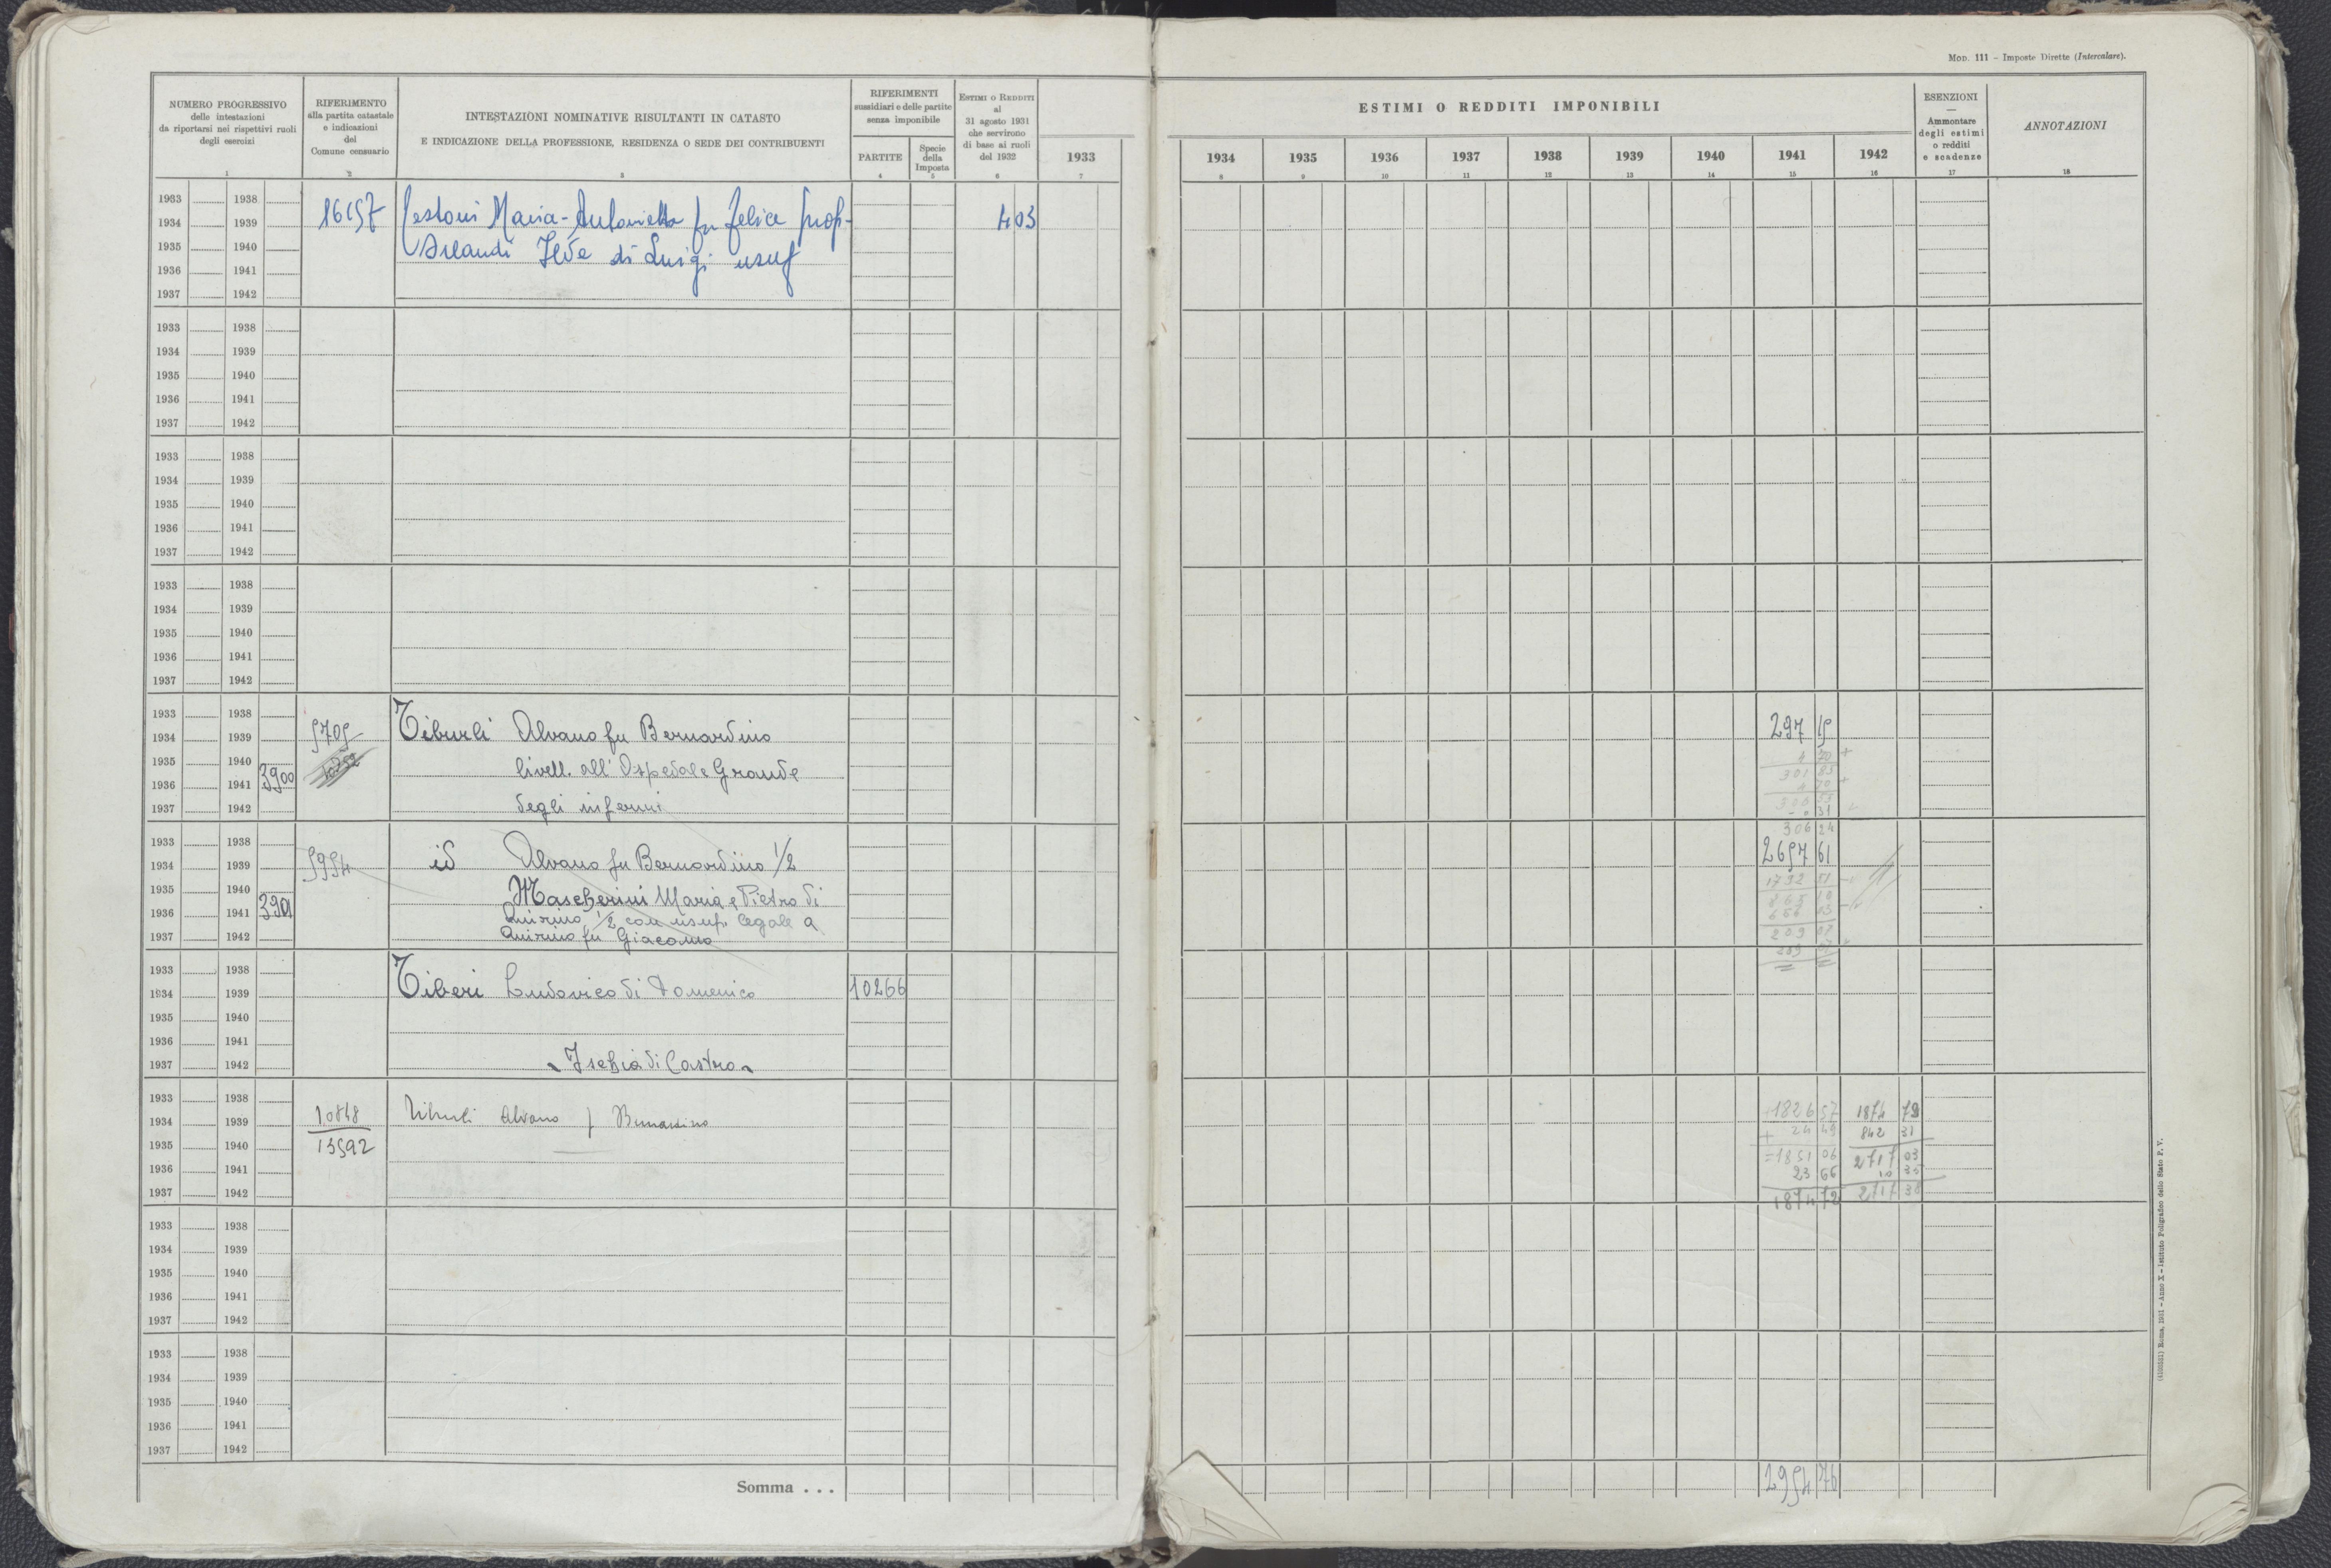 MOD. 111 - Imposte Dirette (Intercalare).
NUMERO PROGRESSIVO
delle intestazioni
da riportarsi nei rispettivi ruoli
degli esercizi
1
RIFERIMENTO
alla partita catastale
e indicazioni
del
Comune censuario
2
INTESTAZIONI NOMINATIVE RISULTANTI IN CATASTO
E INDICAZIONE DELLA PROFESSIONE, RESIDENZA O SEDE DEI CONTRIBUENTI
3
RIFERIMENTI
sussidiari e delle partite
senza imponibile
PARTITE
4
Specie
della
Imposta
5
ESTIMI O REDDITI
al
31 agosto 1931
che servirono
di base ai ruoli
del 1932
6
ESTIMI O REDDITI IMPONIBILI
1933 1934 1935 1936 1937 1938 1939 1940 1941 1942
7 8 9 10 11 12 13 14 15 16
ESENZIONI
—
Ammontare
degli estimi
o redditi
e scadenze
17
ANNOTAZIONI
18
1933 1938
1934 1939 16157 Maria-Antonietta fu Felice prop- 403
1935 1940 Ilde di Luigi usuf
1936 1941
1937 1942
1933 1938
1934 1939
1935 1940
1936 1941
1937 1942
1933 1938
1934 1939
1935 1940
1936 1941
1937 1942
1933 1938
1934 1939
1935 1940
1936 1941
1937 1942
1933 1938
1934 1939 5705 Tiburli Alvano fu Bernardino 297 15
1935 1940 livell. all'Ospedale Grande
1936 1941 3900
1937 1942 degli infermi
301 85
31
306 24
1933 1938
1934 1939 5954 id Alvano fu Bernardino 1/2 2657 61
1935 1940 Mascherini Maria e Pietro di 1792 51
1936 1941 3901 Quirino 1/2 con usuf. legale a
1937 1942 Quirino fu Giacomo
865 10
656 03
209 07
209 07
1933 1938
1934 1939 Tiberi Ludovico di Domenico 10266
1935 1940
1936 1941
1937 1942 Ischia di Castro
1933 1938
1934 1939 10848 Tiburli Alvano f Bernardino +1826 57 1874 72
1935 1940 13592 + 24 49 842 31
1936 1941 =1851 06 2717 03
1937 1942 23 66 10 35
1874 72 2717 38
1933 1938
1934 1939
1935 1940
1936 1941
1937 1942
1933 1938
1934 1939
1935 1940
1936 1941
1937 1942
Somma . . . 2954 76
Roma, 1931 - Anno X - Istituto Poligrafico dello Stato P. V.